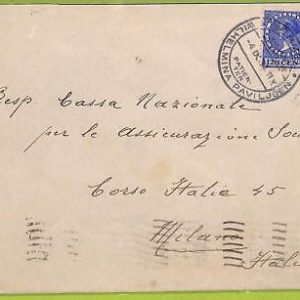 WILHELMINA PAVILJOEN
12½ CENT
Besp Cassa Nazionale
per le Assicurazione Sou
Corso Italia 45
Milano
Itali